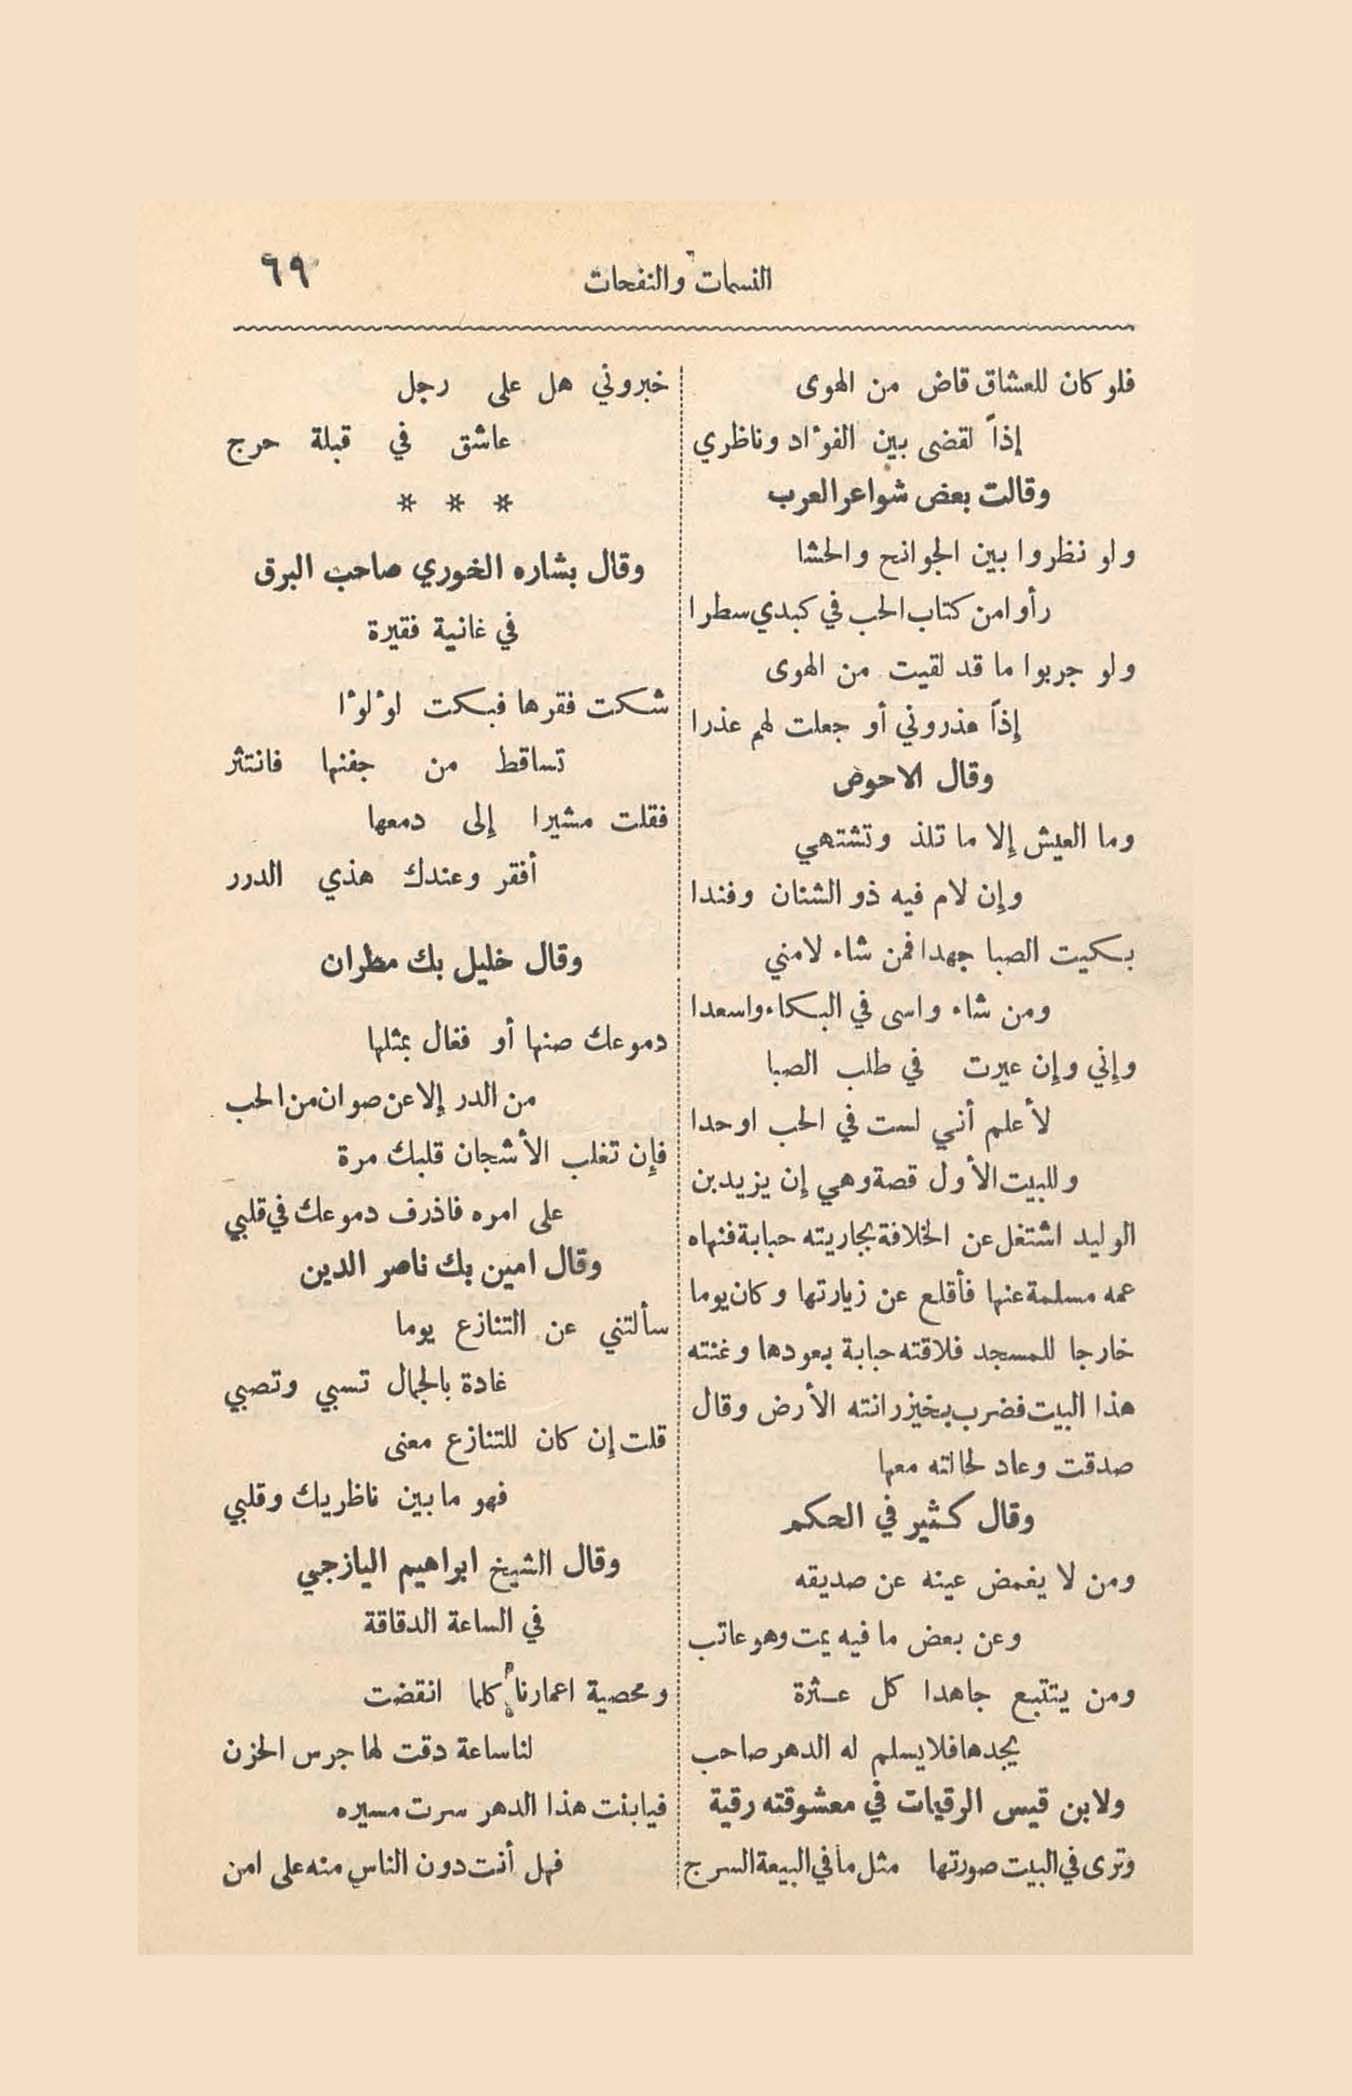 النسمات والنفحات
٦٩
فلو كان للعشاق قاض من الهوى
إذاً لقضى بين الفؤاد وناظري
وقالت بعض شواعر العرب
ولو نظروا بين الجوانح والحشا
رأوا من كتاب الحب في كبدي سطرا
ولو جربوا ما قد لقيت من الهوى
إذاً عذروني أو جعلت لهم عذرا
وقال الاحوض
وما العيش إلا ما تلذ وتشتهي
وإن لام فيه ذو الشنان وفندا
بكيت الصبا جهدا فمن شاء لامني
ومن شاء واسى في البكاء واسعدا
وإني وإن عيرت في طلب الصبا
لأعلم أني لست في الحب اوحدا
وللبيت الأول قصة وهي إن يزيد بن
الوليد اشتغل عن الخلافة بجاريته حبابة فنهاه
عمه مسلمة عنها فأقلع عن زيارتها وكان يوما
خارجا للمسجد فلاقته حبابة بعودها وغنته
هذا البيت فضرب بخيزرانته الأرض وقال
صدقت وعاد لحالته معها
وقال كثير في الحكم
ومن لا يغمض عينه عن صديقه
وعن بعض ما فيه يمت وهو عاتب
ومن يتتبع جاهدا كل عثرة
يجدها فلا يسلم له الدهر صاحب
ولابن قيس الرقيات في معشوقته رقية
وترى في البيت صورتها مثل ما في البيعة السرج
خبروني هل على رجل
عاشق في قبلة حرج
* * *
وقال بشاره الخوري صاحب البرق
في غانية فقيرة
شكت فقرها فبكت لؤلؤا
تساقط من جفنها فانتثر
فقلت مشيرا إلى دمعها
أفقر وعندك هذي الدرر
وقال خليل بك مطران
دموعك صنها أو فغال بمثلها
من الدر إلا عن صوان من الحب
فإن تغلب الأشجان قلبك مرة
على امره فاذرف دموعك في قلبي
وقال امين بك ناصر الدين
سألتني عن التنازع يوما
غادة بالجمال تسبي وتصبي
قلت إن كان للتنازع معنى
فهو ما بين ناظريك وقلبي
وقال الشيخ ابراهيم اليازجي
في الساعة الدقاقة
ومحصية اعمارنا كلما انقضت
لنا ساعة دقت لها جرس الحزن
فيا بنت هذا الدهر سرت مسيره
فهل أنت دون الناس منه على امن